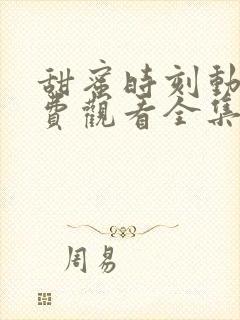 甜蜜時刻動
費觀看全集
周易